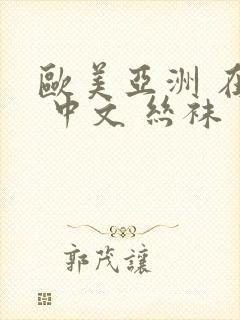 歐美亞洲 在
中文 絲袜
郭茂讓